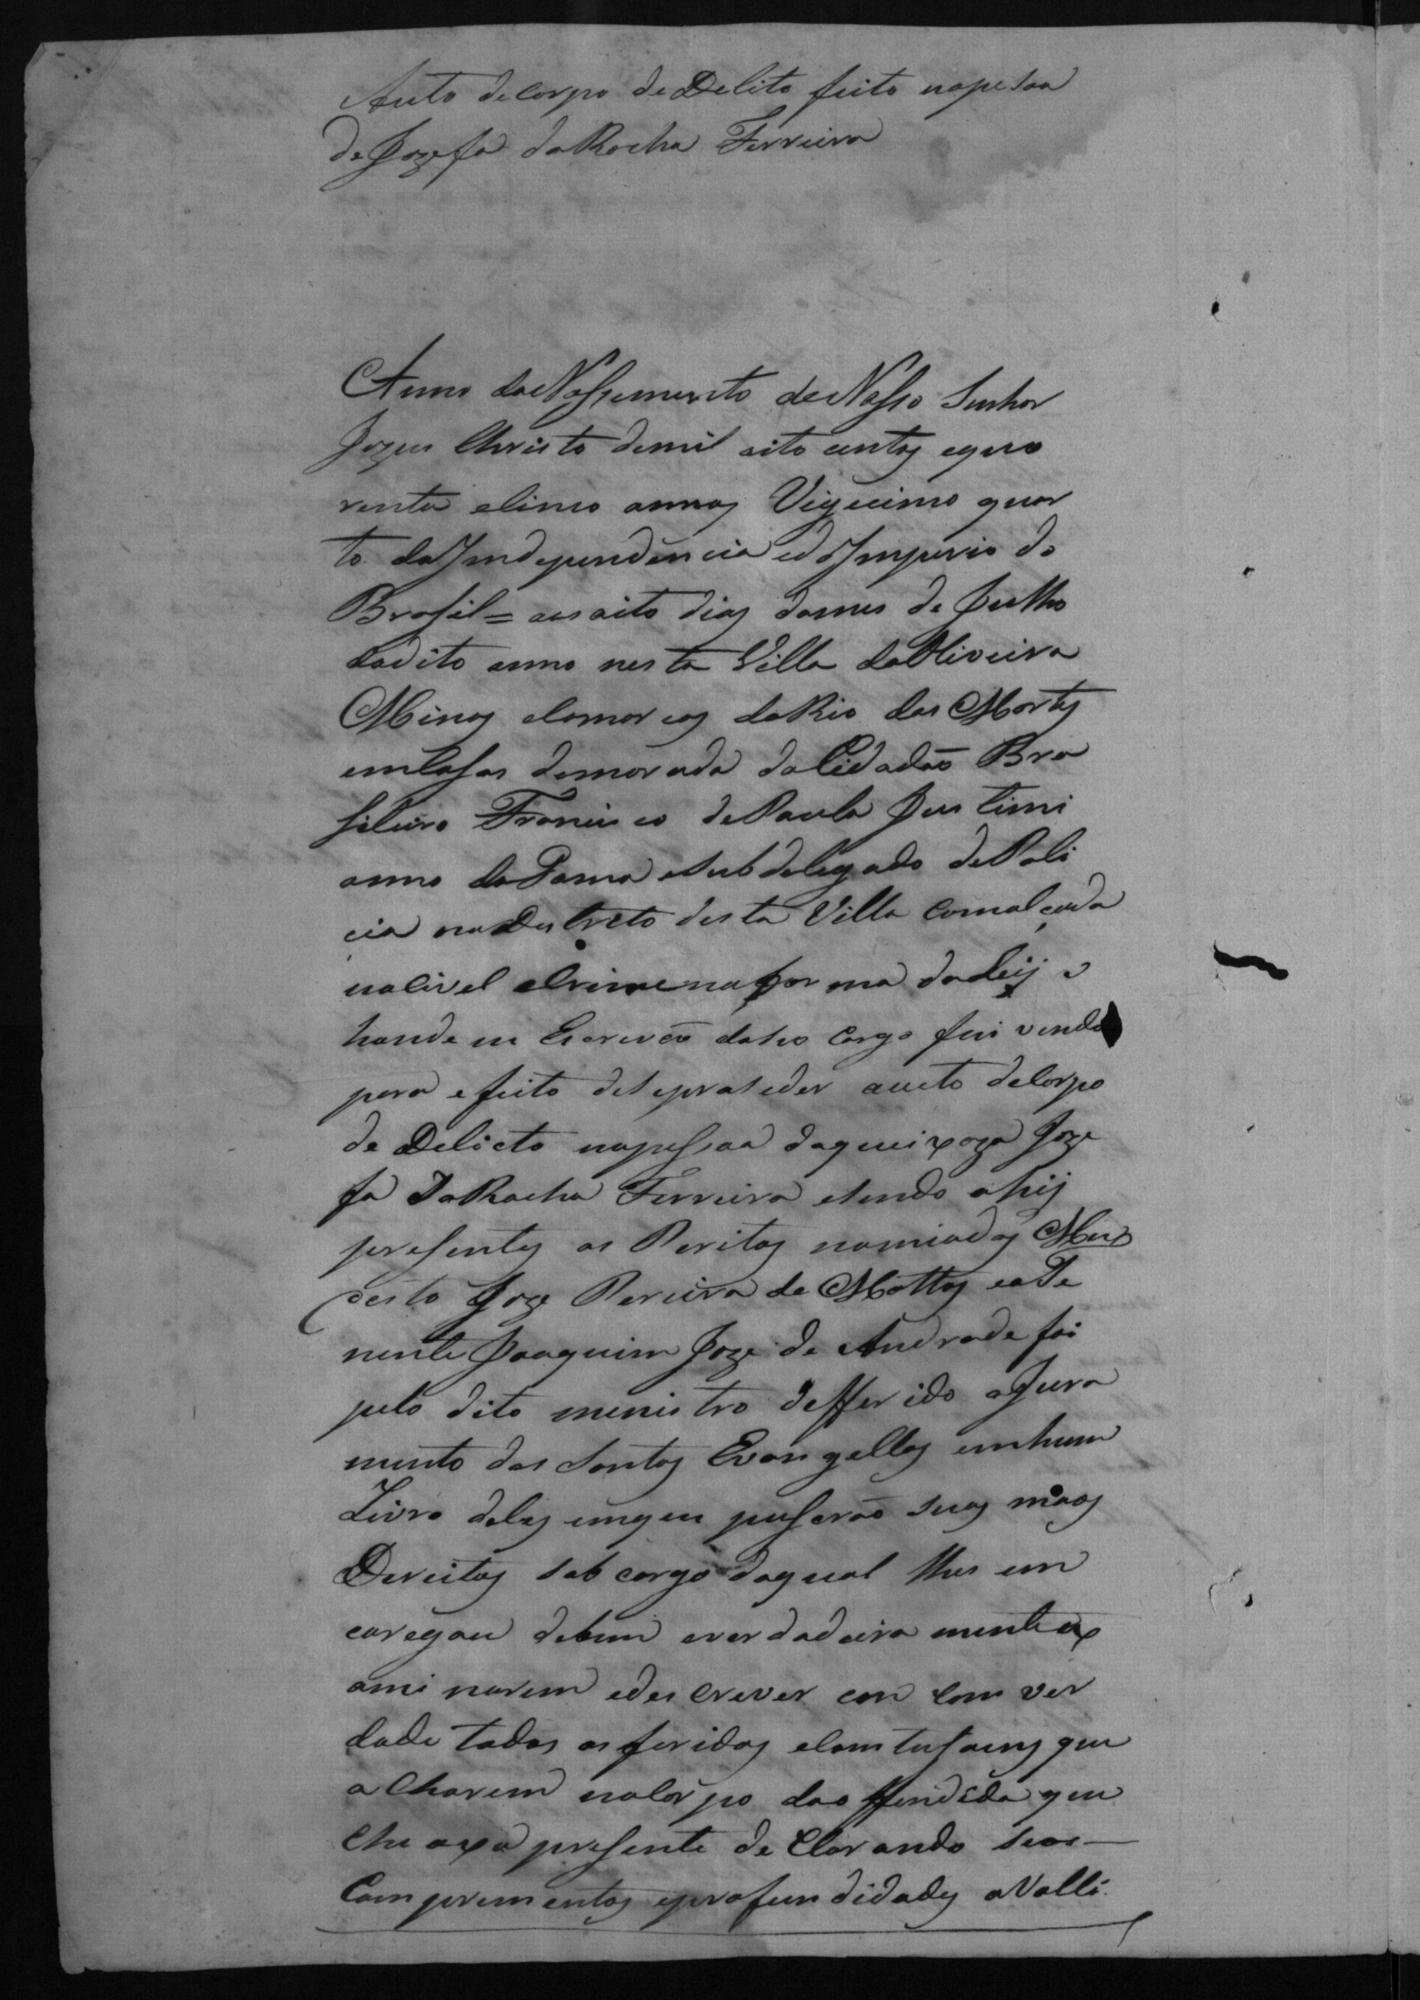 Auto de corpo de Delito feito napesoa
de Jozefa da Rocha Ferreira
Anno do Nassemento de Nosso Senhor
Jozus Christo demil oito centos equa
renta esinco annos Vigecimo quar
to da Independencia edo Imperio do
Brasil = aos oito dias domes de Julho
dodito anno nesta Villa da Oliveira
Minas Comarca do Rio das Mortes
emCasas demorada do Cidadão Bra
sileiro Francisco de Paula Justini
anno da Gama e Subdelegado de Poli
cia no Destreto desta Villa comalçada
no Civel eCrime na forma da Leij e
honde eu Escrivão do seo Cargo fui vendo
para efeito de se proseder aueto de Corpo
de Delicto napessoa daqueixoza Joze
fa Da Rocha Ferreira esendo ahij
presentes os Peritos nomiados Mo
desto Joze Pereira de Mattos eo Te
nente Joaquim Joze de Andrade foi
pelo dito menistro defferido o Jura
mento dos Santos Evangellos em hum
Livro deles emque puserão suas mãos
Dereitas sob cargo doqual lhes en
caregou debem e verdadeira mente ex
ami narem edescrever em com ver
dade todas as feridas e Contusoens que
a Charem no Corpo da offendida que
Che axa presente de Clarando seos
Comprementos eprofundidades aValli